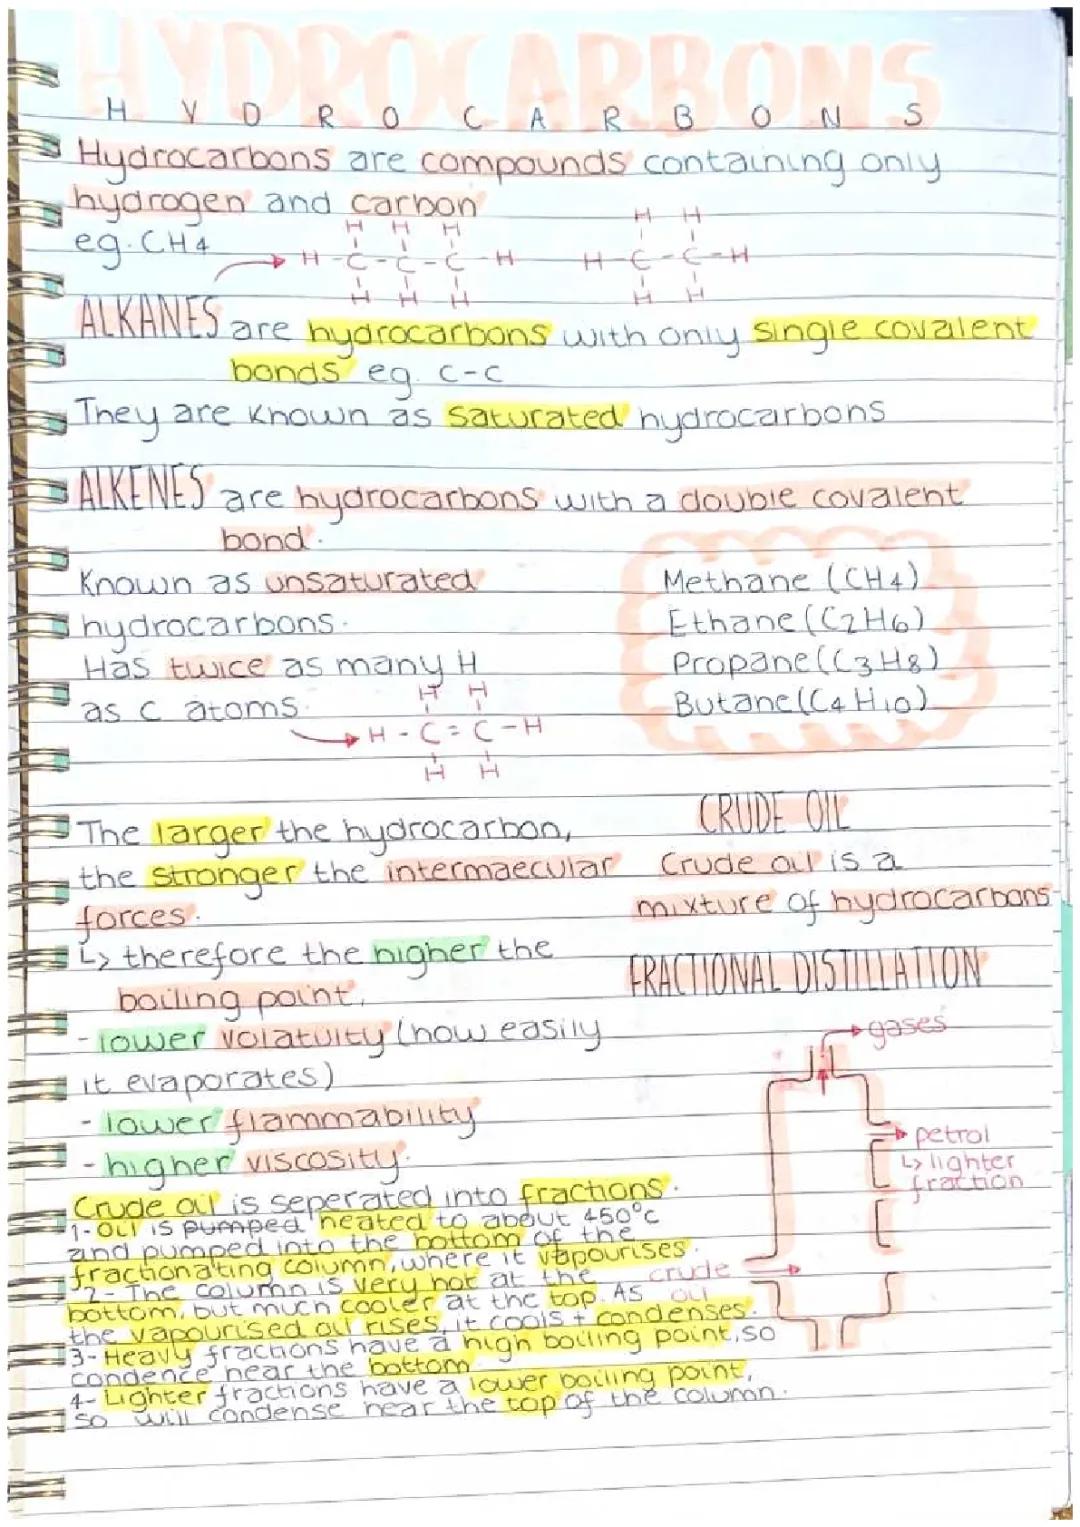 HYDROCARBONS
H Y D R O C A R B O N S
Hydrocarbons are compounds containing only
hydrogen and carbon
eg. CH4
H H H
H-C-C-C-H
H H H
H H
H-C-C-H
H H
ALKANES are hydrocarbons with only single covalent
bonds eg. C-C
They are known as saturated hydrocarbons
ALKENES are hydrocarbons with a double covalent
bond.
Known as unsaturated
hydrocarbons.
Has twice as many H
as C atoms.
H H
H-C=C-H
H H
Methane (CH4)
Ethane (C2H6)
Propane (C3H8)
Butane (C4H10)
The larger the hydrocarbon,
the stronger the intermaecular
forces.
↳ therefore the higher the
boiling point,
- lower volatuity (how easily
it evaporates)
- lower flammability
- higher viscosity.
CRUDE OIL
Crude oil is a
mixture of hydrocarbons
FRACTIONAL DISTILLATION
gases
petrol
↳ lighter
fraction
crude
oil
Crude oil is seperated into fractions.
1- Oil is pumped heated to about 450°c
and pumped into the bottom of the
fractionating column, where it vapourises.
2- The column is very hot at the
bottom, but much cooler at the top. As
the vapourised oil rises, it cools + condenses.
3- Heavy fractions have a high boiling point, so
condence near the bottom
4- Lighter fractions have a lower boiling point,
so will condense near the top of the column.